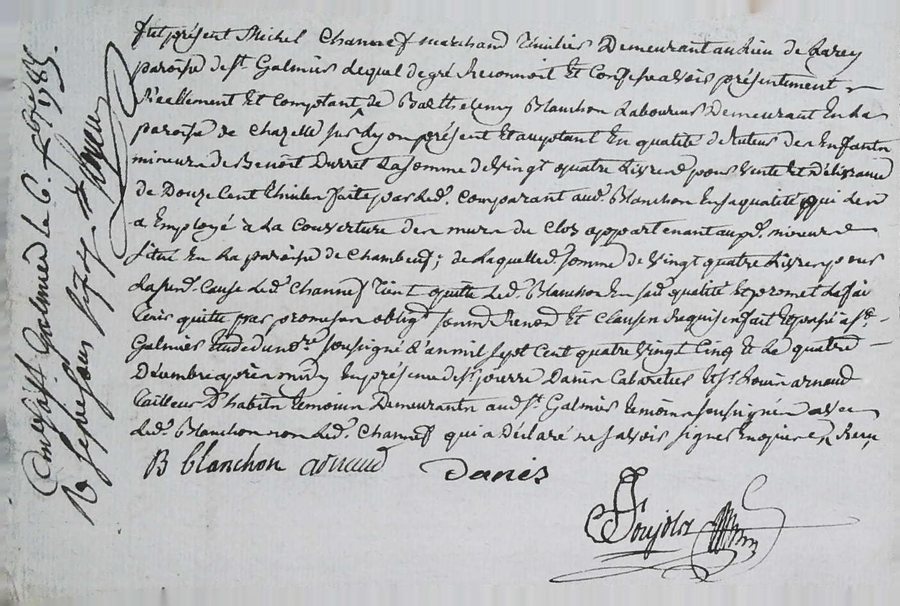 fut présent Michel Channet marchand Thuilier Demeurant au Lieu de
paroisse de St. Galmier Lequel de gré Reconnoit Et Confesse avoir présentement
Réellement Et Comptant de Barthelemy Blanchon Laboureur Demeurant En La
paroisse de Chazelle sur Lyon présent Et acceptant En qualité de Tuteur des Enfants
mineurs de Benoit Durret La somme de Vingt quatre Livres pour Vente Et Délivrance
de Douze Cent Thuiles faite par Led. Comparant aud. Blanchon En sa qualité qui Les
a Employé à La Couverture des murs du Clos appartenant auxd. mineurs
situé En La paroisse de Chambeuf; de Laquelle d. somme de Vingt quatre Livres pour
La susd. Cause Led. Channet Tient quitte Led. Blanchon En sad. qualité Et promet Le fai
tenir quitte par promesses obligt. soumd. Renond. Et Clauses Requises fait Et passé a St.
Galmier Etude du nore. soussigné L'an mil sept Cent quatre Vingt Cinq Et Le quatre
Décembre après midy En présence de sr. pierre Danis Cabaretier Et sr. arnaud
tailleur D'habits Temoins Demeurants aud. St. Galmier Temoins soussignés avec
Led. Blanchon non Led. Channet qui a Déclaré ne savoir signer Enquis Et Requis
B blanchon arnaud Danis
Poujolx
Con^lé à St. Galmier le 6. Xbre 1785.
R sept sous six d.